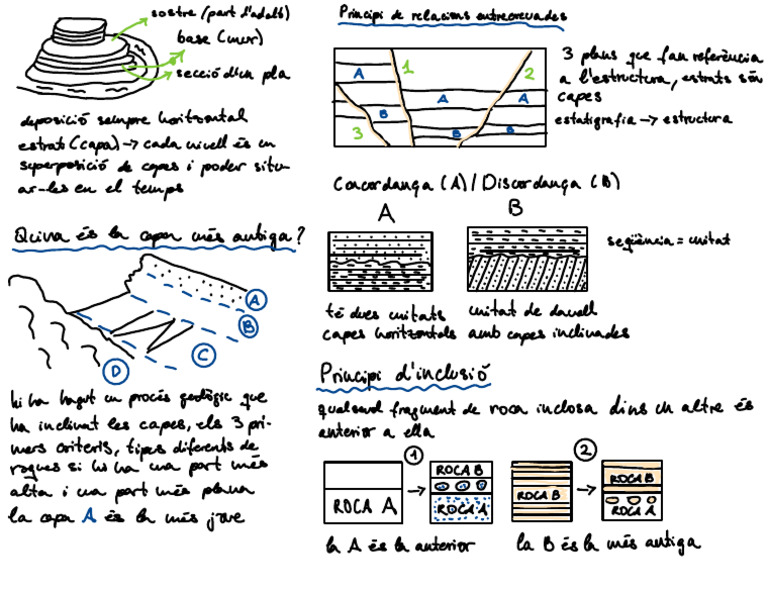 sostre (part d'adalt)
base (mur)
secció d'un pla
deposició sempre horitzontal
estrat (capa) → cada nivell és un
superposició de capes i poder situ-
ar-les en el temps
Quina és la capa més antiga?
A
B
C
D
hi ha hagut un procés geològic que
ha inclinat les capes, els 3 pri-
mers criteris, tipes diferents de
roques si hi ha una part més
alta i una part més plana
la capa A és la més jove
Principi de relacions entrecreuades
1
2
A
A
A
B
B
B
3
3 plans que fan referència
a l'estructura, estrats són
capes
estatigrafia → estructura
Concordança (A) / Discordança (B)
A
B
seqüència = unitat
té dues unitats
capes horitzontals
unitat de davall
amb capes inclinades
Principi d'inclusió
qualsevol fragment de roca inclosa dins un altre és
anterior a ella
1
ROCA A → ROCA B
ROCA A
2
ROCA B → ROCA B
ROCA A
la A és la anterior
la B és la més antiga